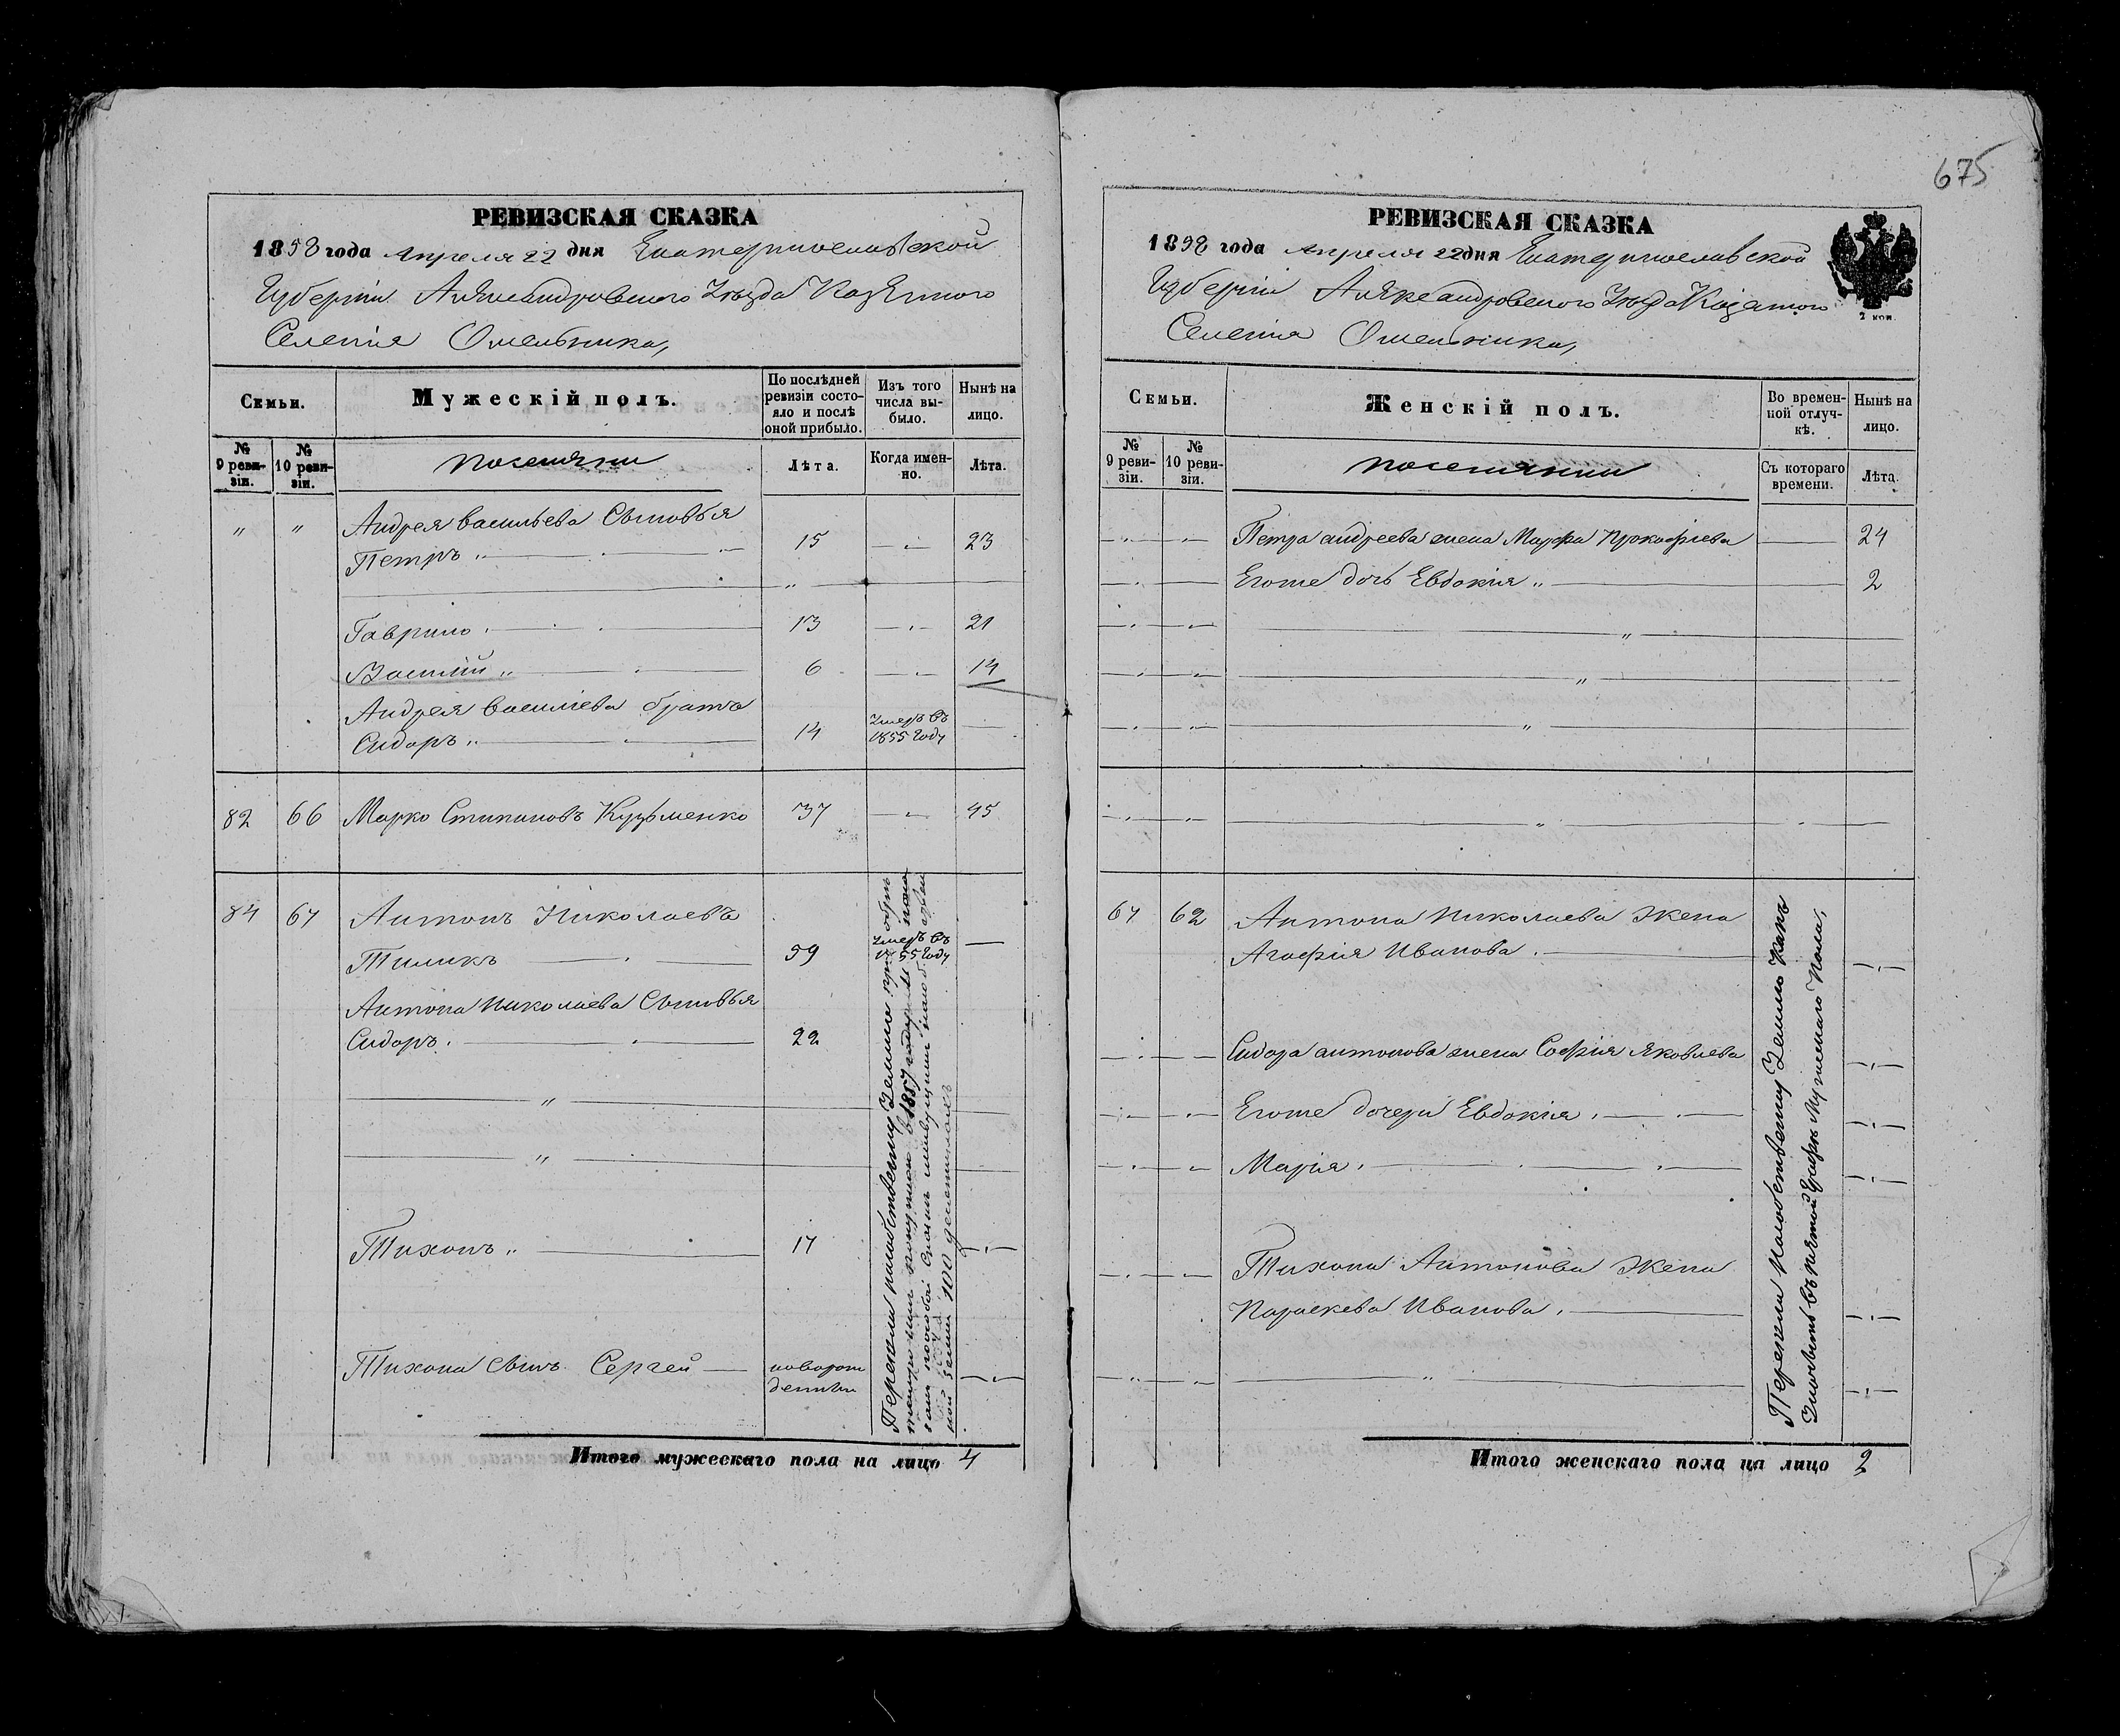 675
РЕВИЗСКАЯ СКАЗКА
1858 года Апреля 22 дня Екатеринославской
Губернiи Александровскаго Уѣзда Казенного
Селенiя Омельника,
Семьи.
Мужескiй полъ.
По послѣдней ревизiи состояло и послѣ оной прибыло.
Изъ того числа выбыло.
Нынѣ на лицо.
№ 9 ревизiи.
№ 10 ревизiи.
Поселяни
Лѣта.
Когда именно.
Лѣта.
" " Андрея Васильева Сыновья
Петръ " 15 23
Гаврило 13 21
Василiй " 6 14
Андрея Василiева братъ
Сидоръ " 14 Умеръ въ 1855 году
82 66 Марко Стипановъ Кузьменко 37 45
84 67 Антонъ Николаевъ
Тиликъ 59 Умеръ въ 1855 году
Антона Николаева Сыновья
Сидоръ 22
"
"
Тихонъ " 17
Тихона сынъ Сергей
Перешли на собственну Землю
в 1857 году
100
Итого мужескаго пола на лицо 4
РЕВИЗСКАЯ СКАЗКА
1858 года Апреля 22 дня Екатеринославской
Губернiи Александровскаго Уѣзда Казенного
Селенiя Омельника,
2 коп.
Семьи.
Женскiй полъ.
Во временной отлучкѣ.
Нынѣ на лицо.
№ 9 ревизiи.
№ 10 ревизiи.
Поселянки
Съ котораго времени.
Лѣта.
Петра андреева жена Марфа Прокофiева 24
Егоже дочь Евдокiя " 2
"
"
"
"
67 62 Антона Николаева Жена
Агафiя Иванова
Сидора антонова жена Софiя Яковлева
Егоже дочери Евдокiя
Марiя
Тихона Антонова Жена
Параскева Иванова
"
Перешли на собственну Землю какъ
въ пятой Графѣ Мужескаго Пола,
Итого женскаго пола на лицо 2